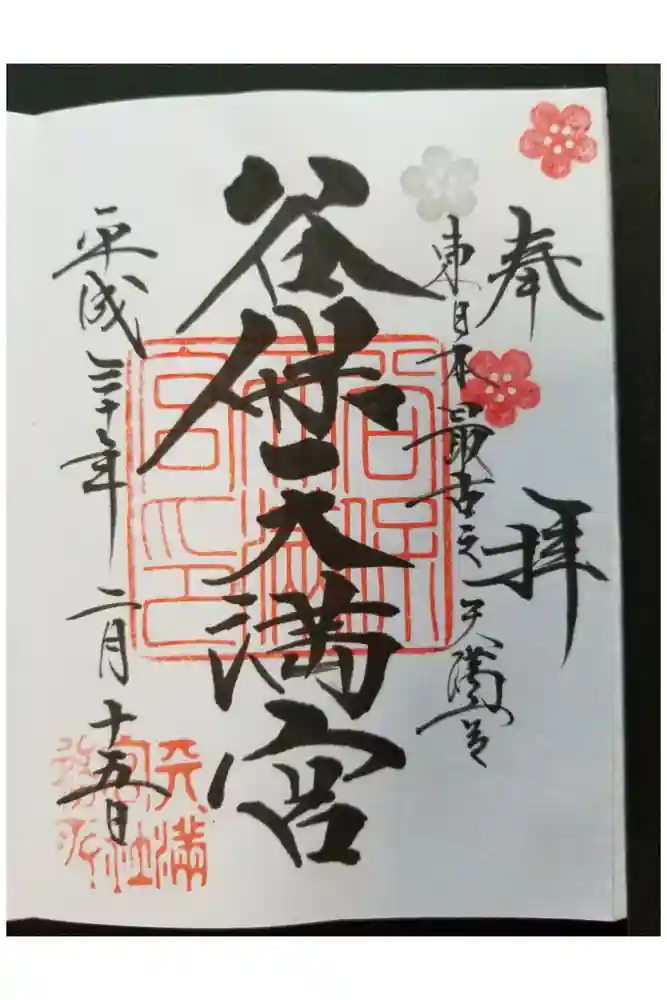 奉拝
東日本最古之天満宮
谷保天満宮
平成三十年二月十五日
谷保天満宮印
天満宮社務所